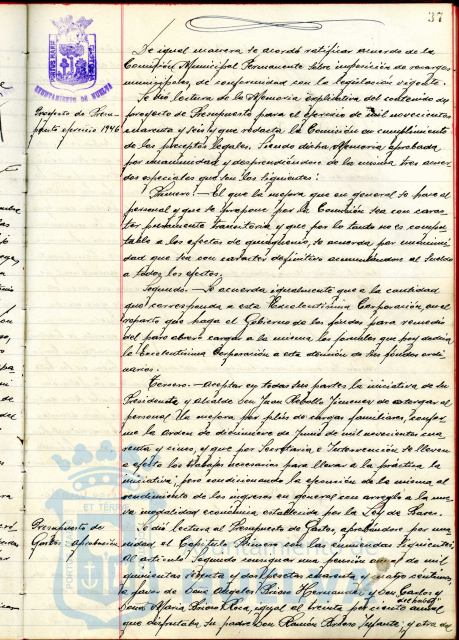 37
AYUNTAMIENTO DE HUELVA
De igual manera se acordó ratificar acuerdo de la
Comisión Municipal Permanente sobre imposición de recargos
municipales, de conformidad con la legislación vigente.
Proyecto de Presu-
puesto ejercicio 1946
Se dió lectura de la Memoria explicativa del contenido del
proyecto de Presupuesto para el ejercicio de mil novecientos
cuarenta y seis y que redacta la Comisión en cumplimiento
de los preceptos legales. Siendo dicha Memoria aprobada
por unanimidad y desprendiéndose de la misma tres acuer-
dos especiales que son los siguientes:
Primero.- El que la mejora que en general se hace al
personal y que se propone por la Comisión sea con carac-
ter puramente transitoria y que por lo tanto no es compu-
table a los efectos de quinquenio, se acuerda por unanimi-
dad que sea con carácter definitivo acumulándose al sueldo
a todos los efectos.
Segundo.- Se acuerda igualmente que a la cantidad
que corresponda a esta Excelentísima Corporación, en el
reparto que haga el Gobierno de los fondos para remedio
del paro obrero cargar a la misma los jornales que hoy dedica
la Excelentísima Corporación a esta atención de sus fondos ordi-
narios.
Tercero.- Aceptar en todas sus partes la iniciativa de su
Presidente y Alcalde Don Juan Rebollo Jimenez de otorgar al
personal una mejora por plus de cargas familiares, confor-
me la orden de diecinueve de Junio de mil novecientos cua-
renta y cinco, y que por Secretaría e Intervención se lleven
a efecto los trabajos necesarios para llevar a la práctica la
iniciativa; pero condicionando la ejecución de la misma al
rendimiento de los ingresos en general con arreglo a la nue-
va modalidad económica establecida por la Ley de Bases.
Presupuesto de
Gastos: aprobación
Se dió lectura al Presupuesto de Gastos, aprobándose por una-
nimidad, el Capítulo Primero con las enmiendas siguientes:
Al artículo Segundo consignar una pensión anual de mil
quinientas y dos pesetas cuarenta y cuatro centimos,
a favor de Doña Angeles Hernandez y Don Carlos y
Doña Maria igual al treinta por ciento anual del haber
que disfrutaba su padre Don Ramón y otra de